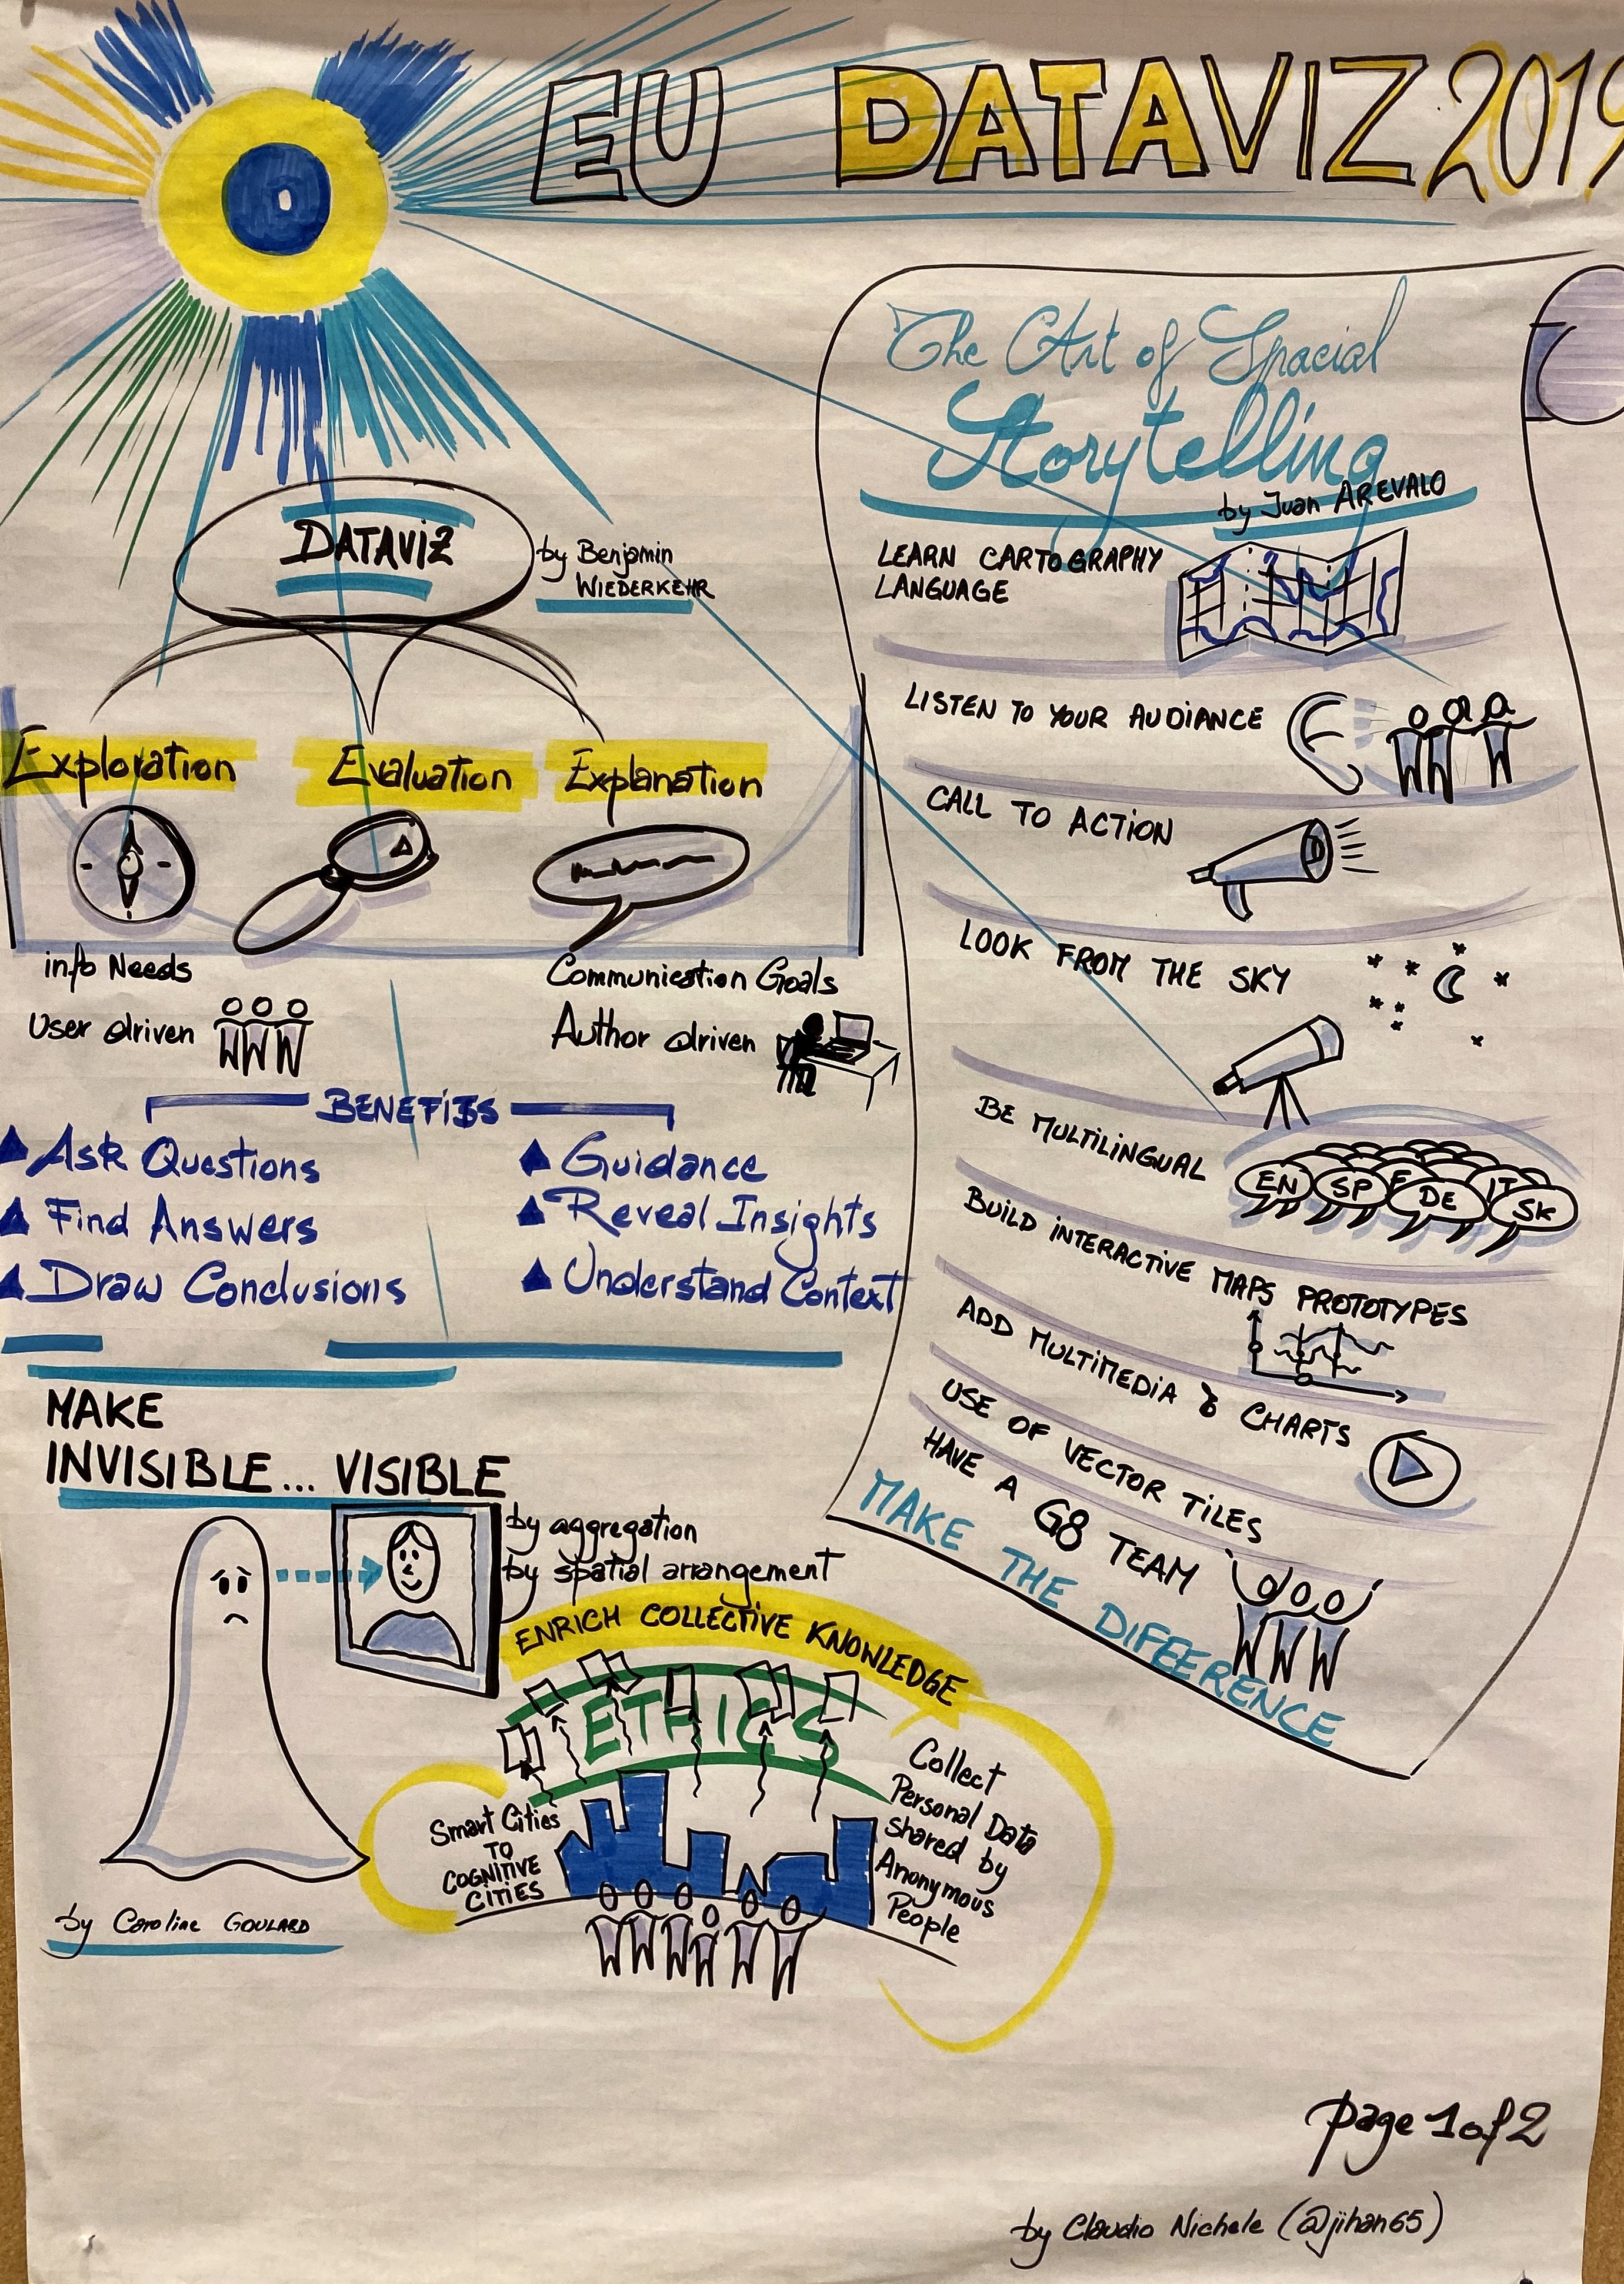 EU DATAVIZ 2019
DATAVIZ
by Benjamin
WIEDERKEHR
Exploration
Evaluation
Explanation
info Needs
User driven
Communication Goals
Author driven
BENEFITS
Ask Questions
Find Answers
Draw Conclusions
Guidance
Reveal Insights
Understand Context
MAKE
INVISIBLE... VISIBLE
by aggregation
by spatial arrangement
by Caroline GOULARD
ENRICH COLLECTIVE KNOWLEDGE
ETHICS
Smart Cities
TO
COGNITIVE
CITIES
Collect
Personal Data
shared by
Anonymous
People
The Art of Spacial
Storytelling
by Juan AREVALO
LEARN CARTOGRAPHY
LANGUAGE
LISTEN TO YOUR AUDIANCE
CALL TO ACTION
LOOK FROM THE SKY
BE MULTILINGUAL
EN SP F DE IT SK
BUILD INTERACTIVE MAPS PROTOTYPES
ADD MULTIMEDIA & CHARTS
USE OF VECTOR TILES
HAVE A G8 TEAM
MAKE THE DIFFERENCE
page 1 of 2
by Claudio Nichele (@jihan65)